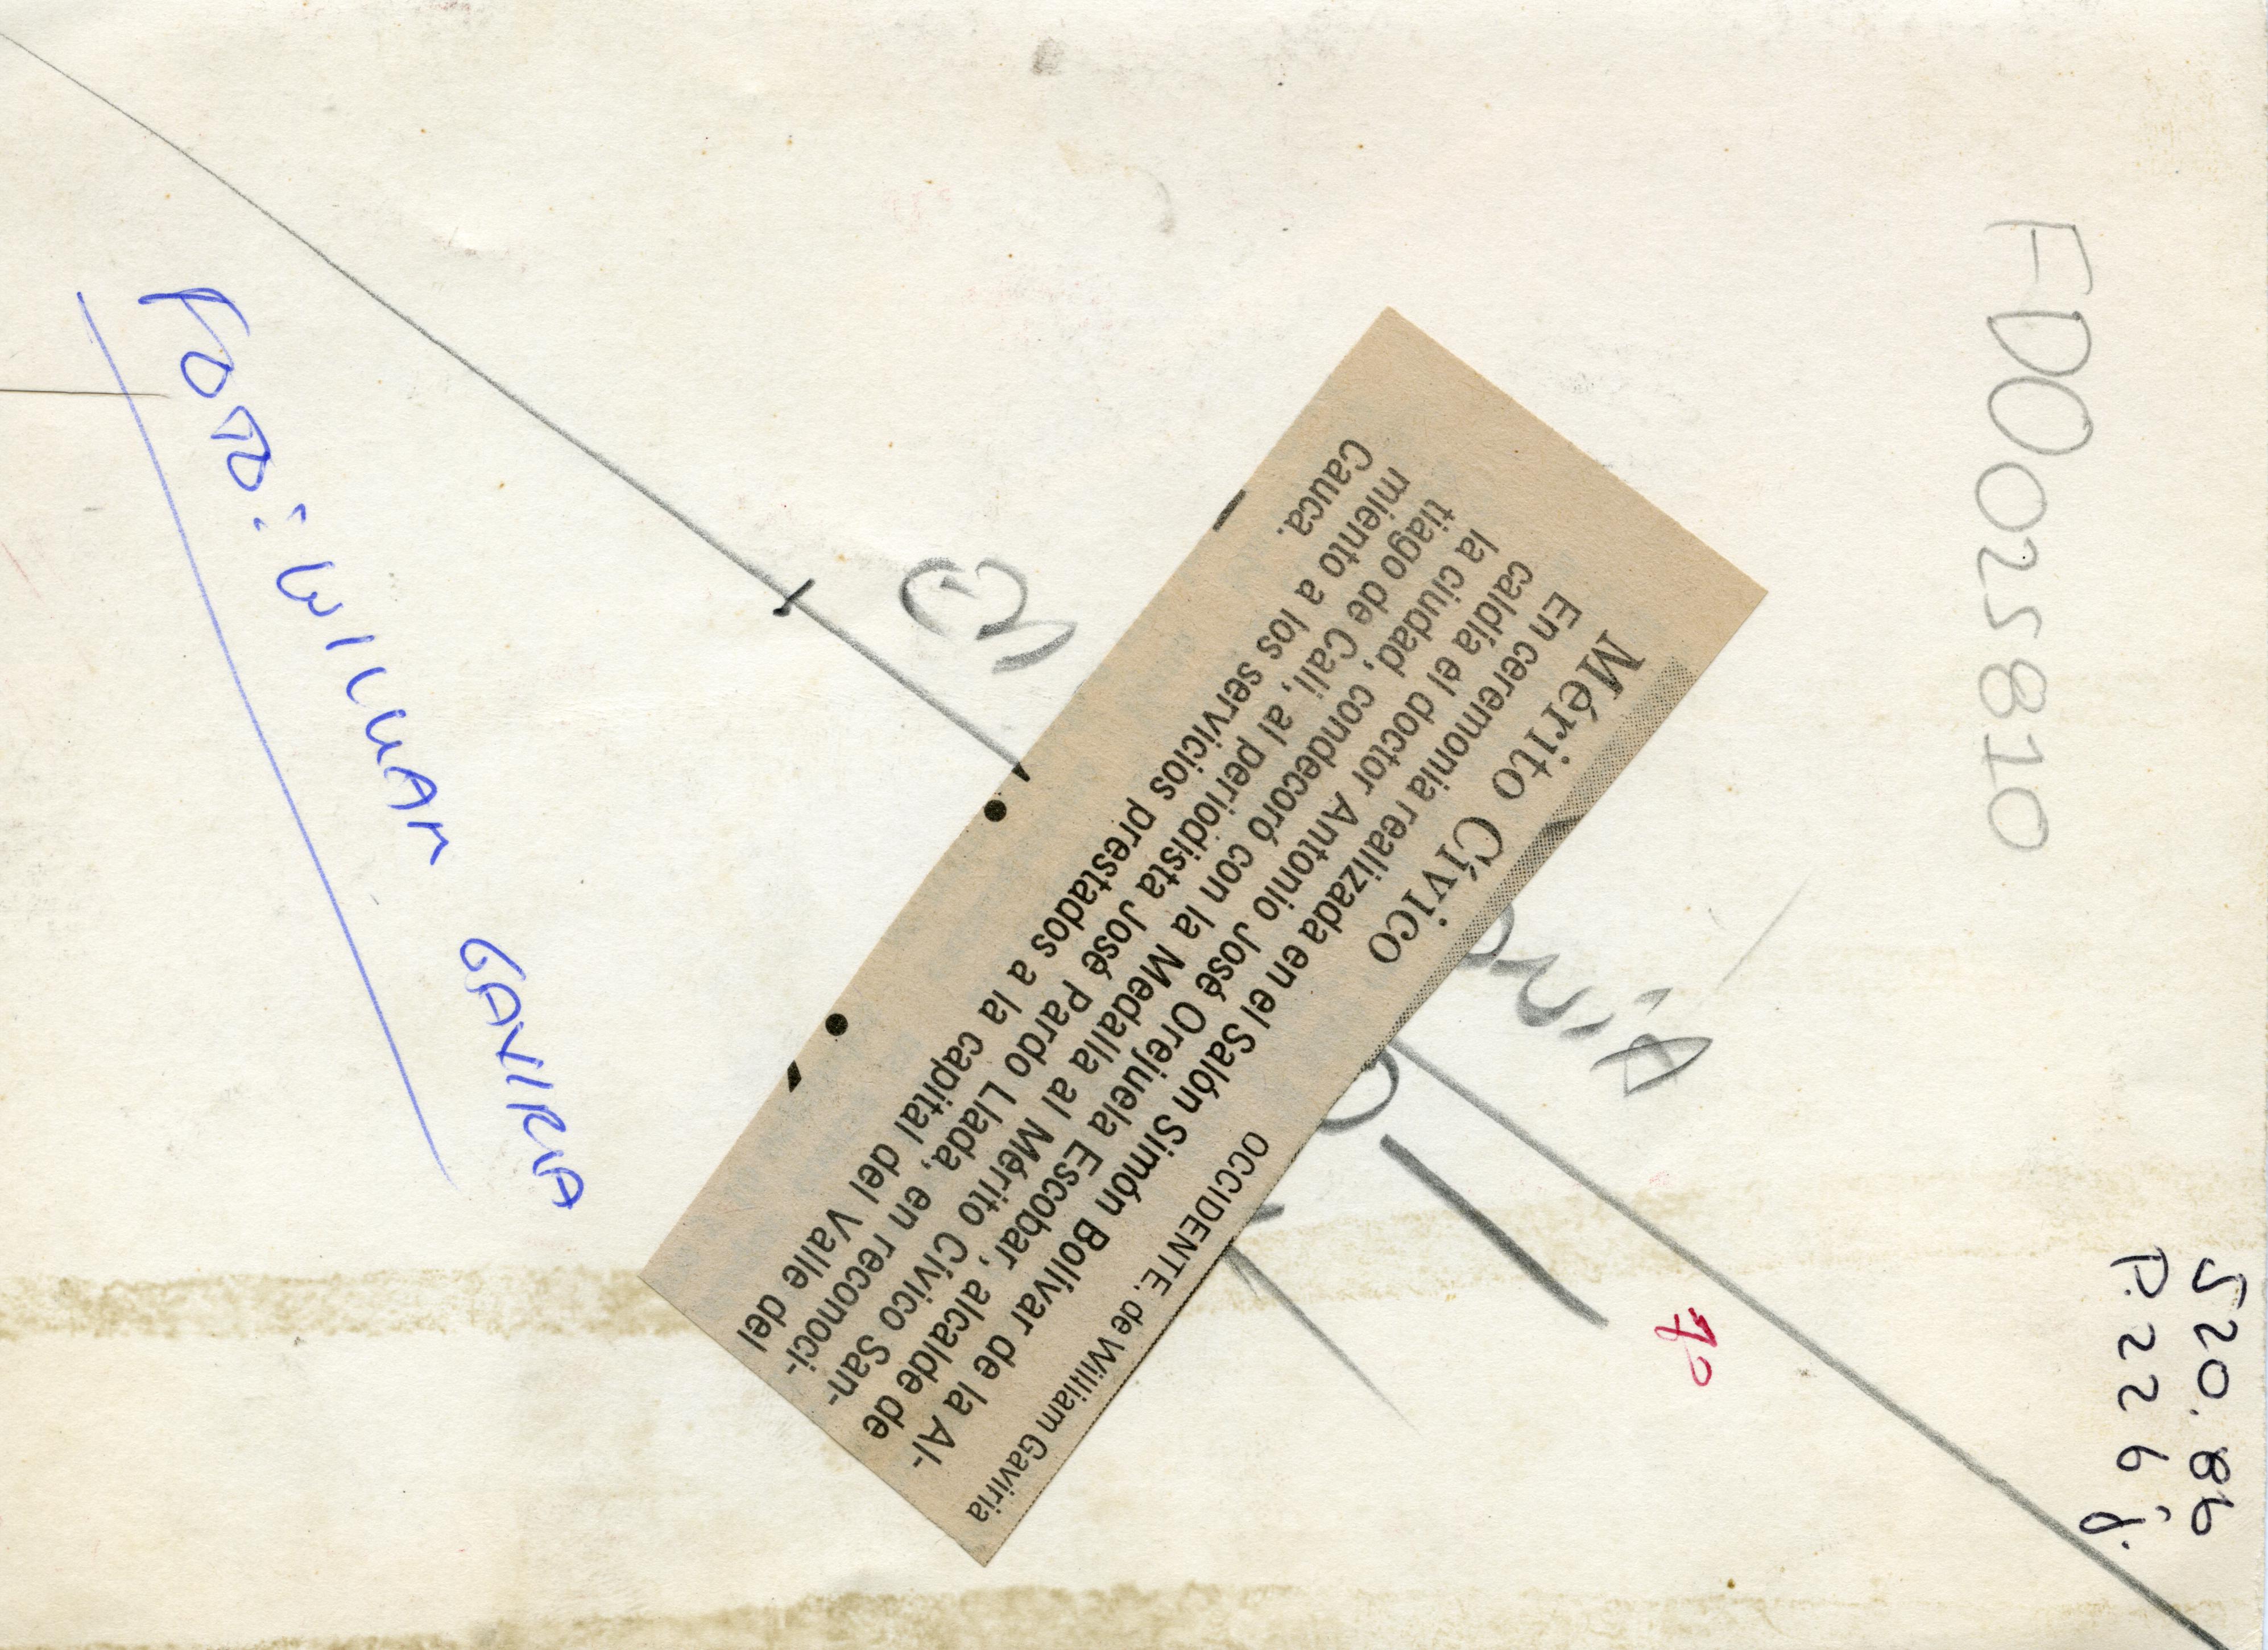 FD0025810
520.86
P.226j.
70
OCCIDENTE, de William Gaviria
Mérito Cívico
En ceremonia realizada en el Salón Simón Bolívar de la Al-
caldía el doctor Antonio José Orejuela Escobar, alcalde de
la ciudad, condecoró con la Medalla al Mérito Cívico San-
tiago de Cali, al periodista José Pardo Llada, en reconoci-
miento a los servicios prestados a la capital del Valle del
Cauca.
FOTO: WILLIAM GAVIRIA